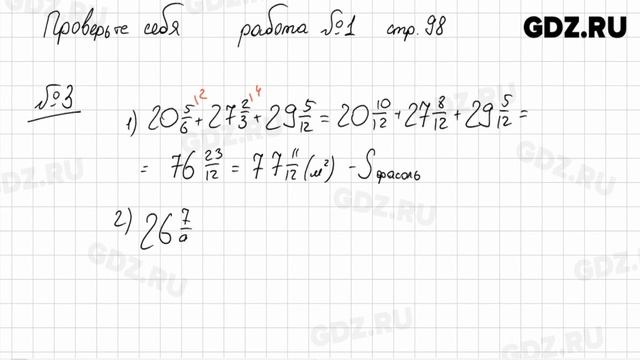 Проверьте себя работа №1 стр. 98
GDZ.RU
№3
1) 20 5/6 + 27 2/3 + 29 5/12 = 20 10/12 + 27 8/12 + 29 5/12 =
= 76 23/12 = 77 11/12 (м²) - S фасоль
2) 26 7/